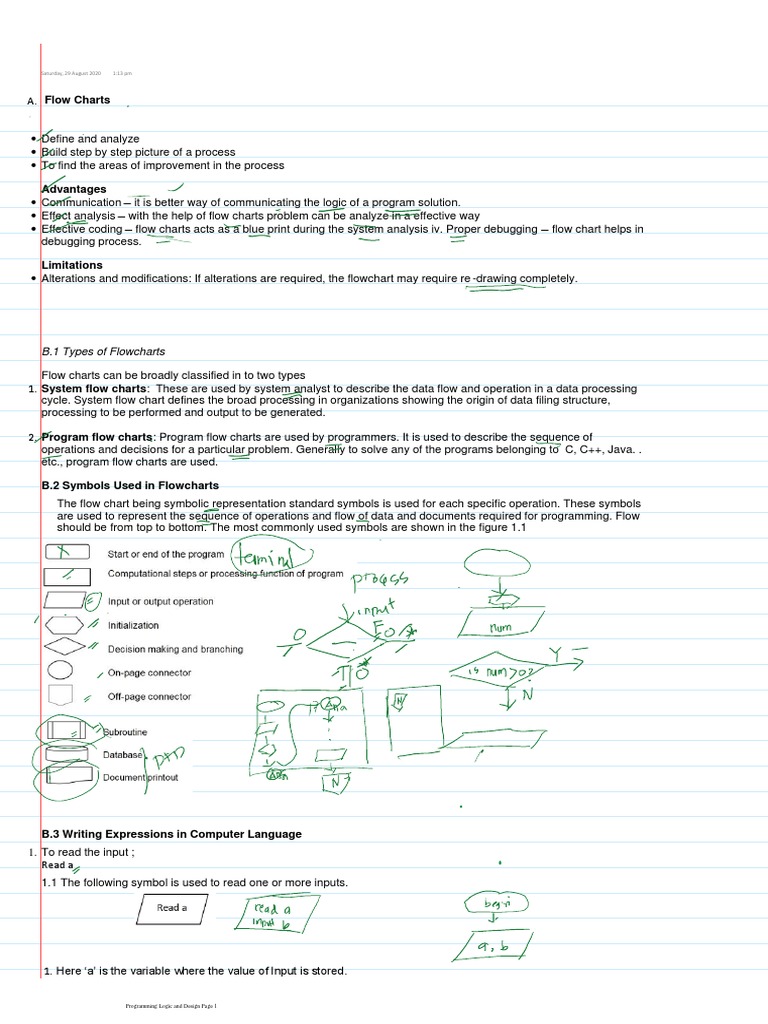 Saturday, 29 August 2020 1:13 pm
A. Flow Charts
• Define and analyze
• Build step by step picture of a process
• To find the areas of improvement in the process
Advantages
• Communication – it is better way of communicating the logic of a program solution.
• Effect analysis – with the help of flow charts problem can be analyze in a effective way
• Effective coding – flow charts acts as a blue print during the system analysis iv. Proper debugging – flow chart helps in
debugging process.
Limitations
• Alterations and modifications: If alterations are required, the flowchart may require re-drawing completely.
B.1 Types of Flowcharts
Flow charts can be broadly classified in to two types
1. System flow charts: These are used by system analyst to describe the data flow and operation in a data processing
cycle. System flow chart defines the broad processing in organizations showing the origin of data filing structure,
processing to be performed and output to be generated.
2. Program flow charts: Program flow charts are used by programmers. It is used to describe the sequence of
operations and decisions for a particular problem. Generally to solve any of the programs belonging to C, C++, Java. .
etc., program flow charts are used.
B.2 Symbols Used in Flowcharts
The flow chart being symbolic representation standard symbols is used for each specific operation. These symbols
are used to represent the sequence of operations and flow of data and documents required for programming. Flow
should be from top to bottom. The most commonly used symbols are shown in the figure 1.1
Start or end of the program terminal
Computational steps or processing function of program
process
Input or output operation
input
Initialization
num
Decision making and branching
Y
On-page connector
is num>0?
N
Off-page connector
Subroutine
Database
Document printout
N
B.3 Writing Expressions in Computer Language
1. To read the input ;
Read a
1.1 The following symbol is used to read one or more inputs.
Read a
read a
input b
begin
a, b
1. Here 'a' is the variable where the value of Input is stored.
Programming Logic and Design Page 1